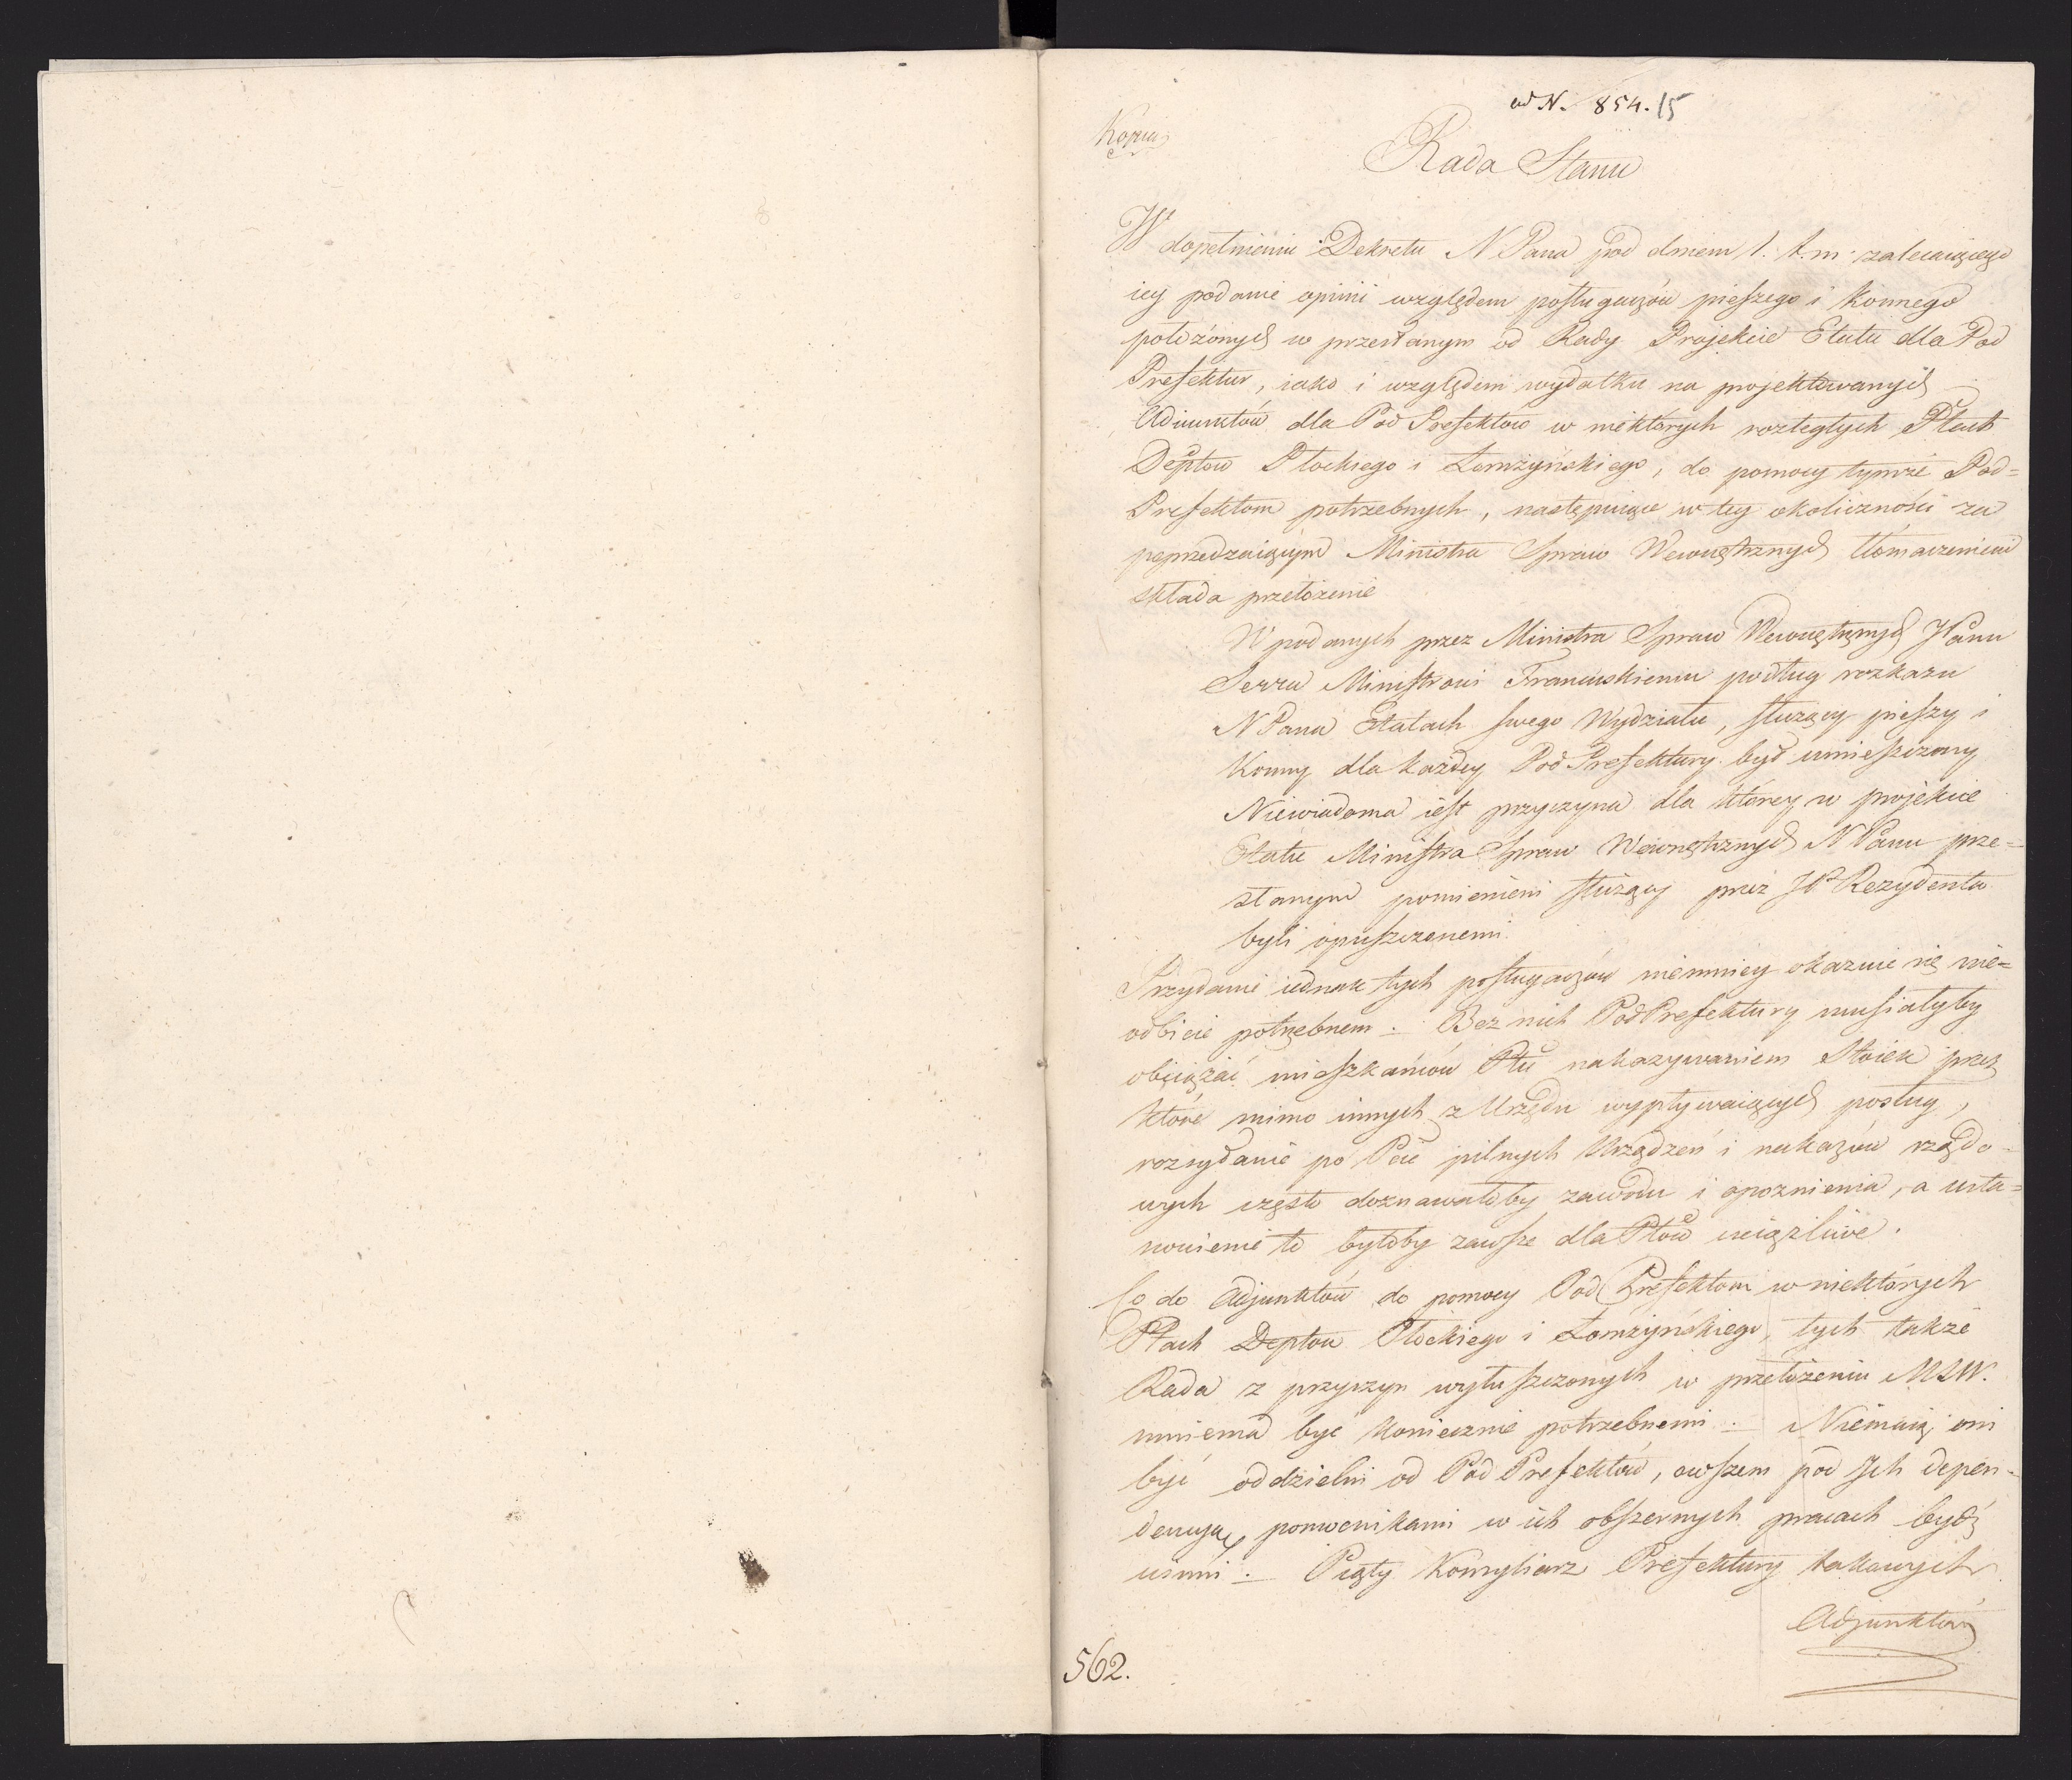 ad N. 854.15
Kopia
Rada Stanu
W dopełnieniu Dekretu N Pana pod dniem 1. t. m. zalecaiącego
iey podanie opinii względem posługaczów pieszego i konnego
położonych w przesłanym od Rady Projekcie Etatu dla Pod
Prefektur, iako i względem wydatku na projektowanych
Adiunktów dla Pod Prefektów w niektórych rozległych Ptach
Deptów Płockiego i Łomżyńskiego, do pomocy tymże Pod=
Prefektom potrzebnych, następuiące w tey okoliczności za
poprzedzaiącym Ministra Spraw Wewnętrznych tłomaczeniem
składa przełożenie
W podanych przez Ministra Spraw Wewnętrznych JPanu
Serra Ministrowi Francuskiemu podług rozkazu
N Pana Etatach swego Wydziału, służący pieszy i
Konny dla każdey Pod Prefektury był umieszczony
Niewiadoma iest przyczyna dla którey w projekcie
Etatu Ministra Spraw Wewnętrznych N Panu prze=
słanym pomienieni służący przez JP Rezydenta
byli opuszczonemi.
Przydanie iednak tych posługaczów niemniey okazuie się nie=
odbicie potrzebnem. Bez nich Pod Prefektury musiałyby
obciążać mieszkańców Ptu nakazywaniem Stoiek przez
które mimo innych z Urzędu wypływaiących posług,
rozsyłanie po Pcie pilnych Urządzeń i nakazów rządo=
wych często doznawałoby zawodu i opoznienia, a usta=
nowienie to byłoby zawsze dla Ptów uciążliwe.
Co do Adjunktów do pomocy Pod Prefektom w niektórych
Ptach Deptów Płockiego i Łomżyńskiego, tych także
Rada z przyczyn wyłuszczonych w przełożeniu MSW.
mniema być koniecznie potrzebnemi. Niemaią oni
być oddzielni od Pod Prefektów, owszem pod Ich depen=
dencyą pomocnikami w ich obszernych pracach bydź
winni. Piąty Konsyliarz Prefektury takowych
Adjunktów
562.